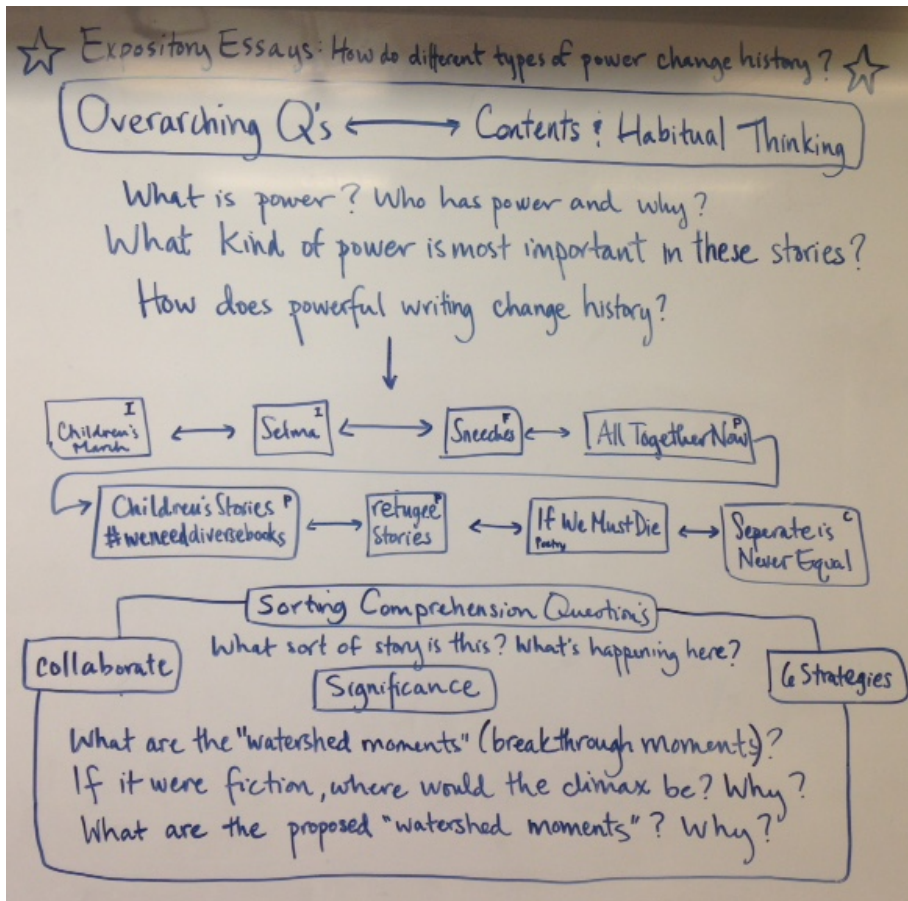 ☆ Expository Essays: How do different types of power change history? ☆
Overarching Q's ⟷ Contents & Habitual Thinking
What is power? Who has power and why?
What kind of power is most important in these stories?
How does powerful writing change history?
I I F P
Children's Selma Sneeches All Together Now
March
Children's Stories P refugee P If We Must Die Seperate is C
#weneeddiversebooks Stories Poetry Never Equal
Sorting Comprehension Question's
Collaborate What sort of story is this? What's happening here? 6 Strategies
Significance
What are the "watershed moments" (breakthrough moments)?
If it were fiction, where would the climax be? Why?
What are the proposed "watershed moments"? Why?